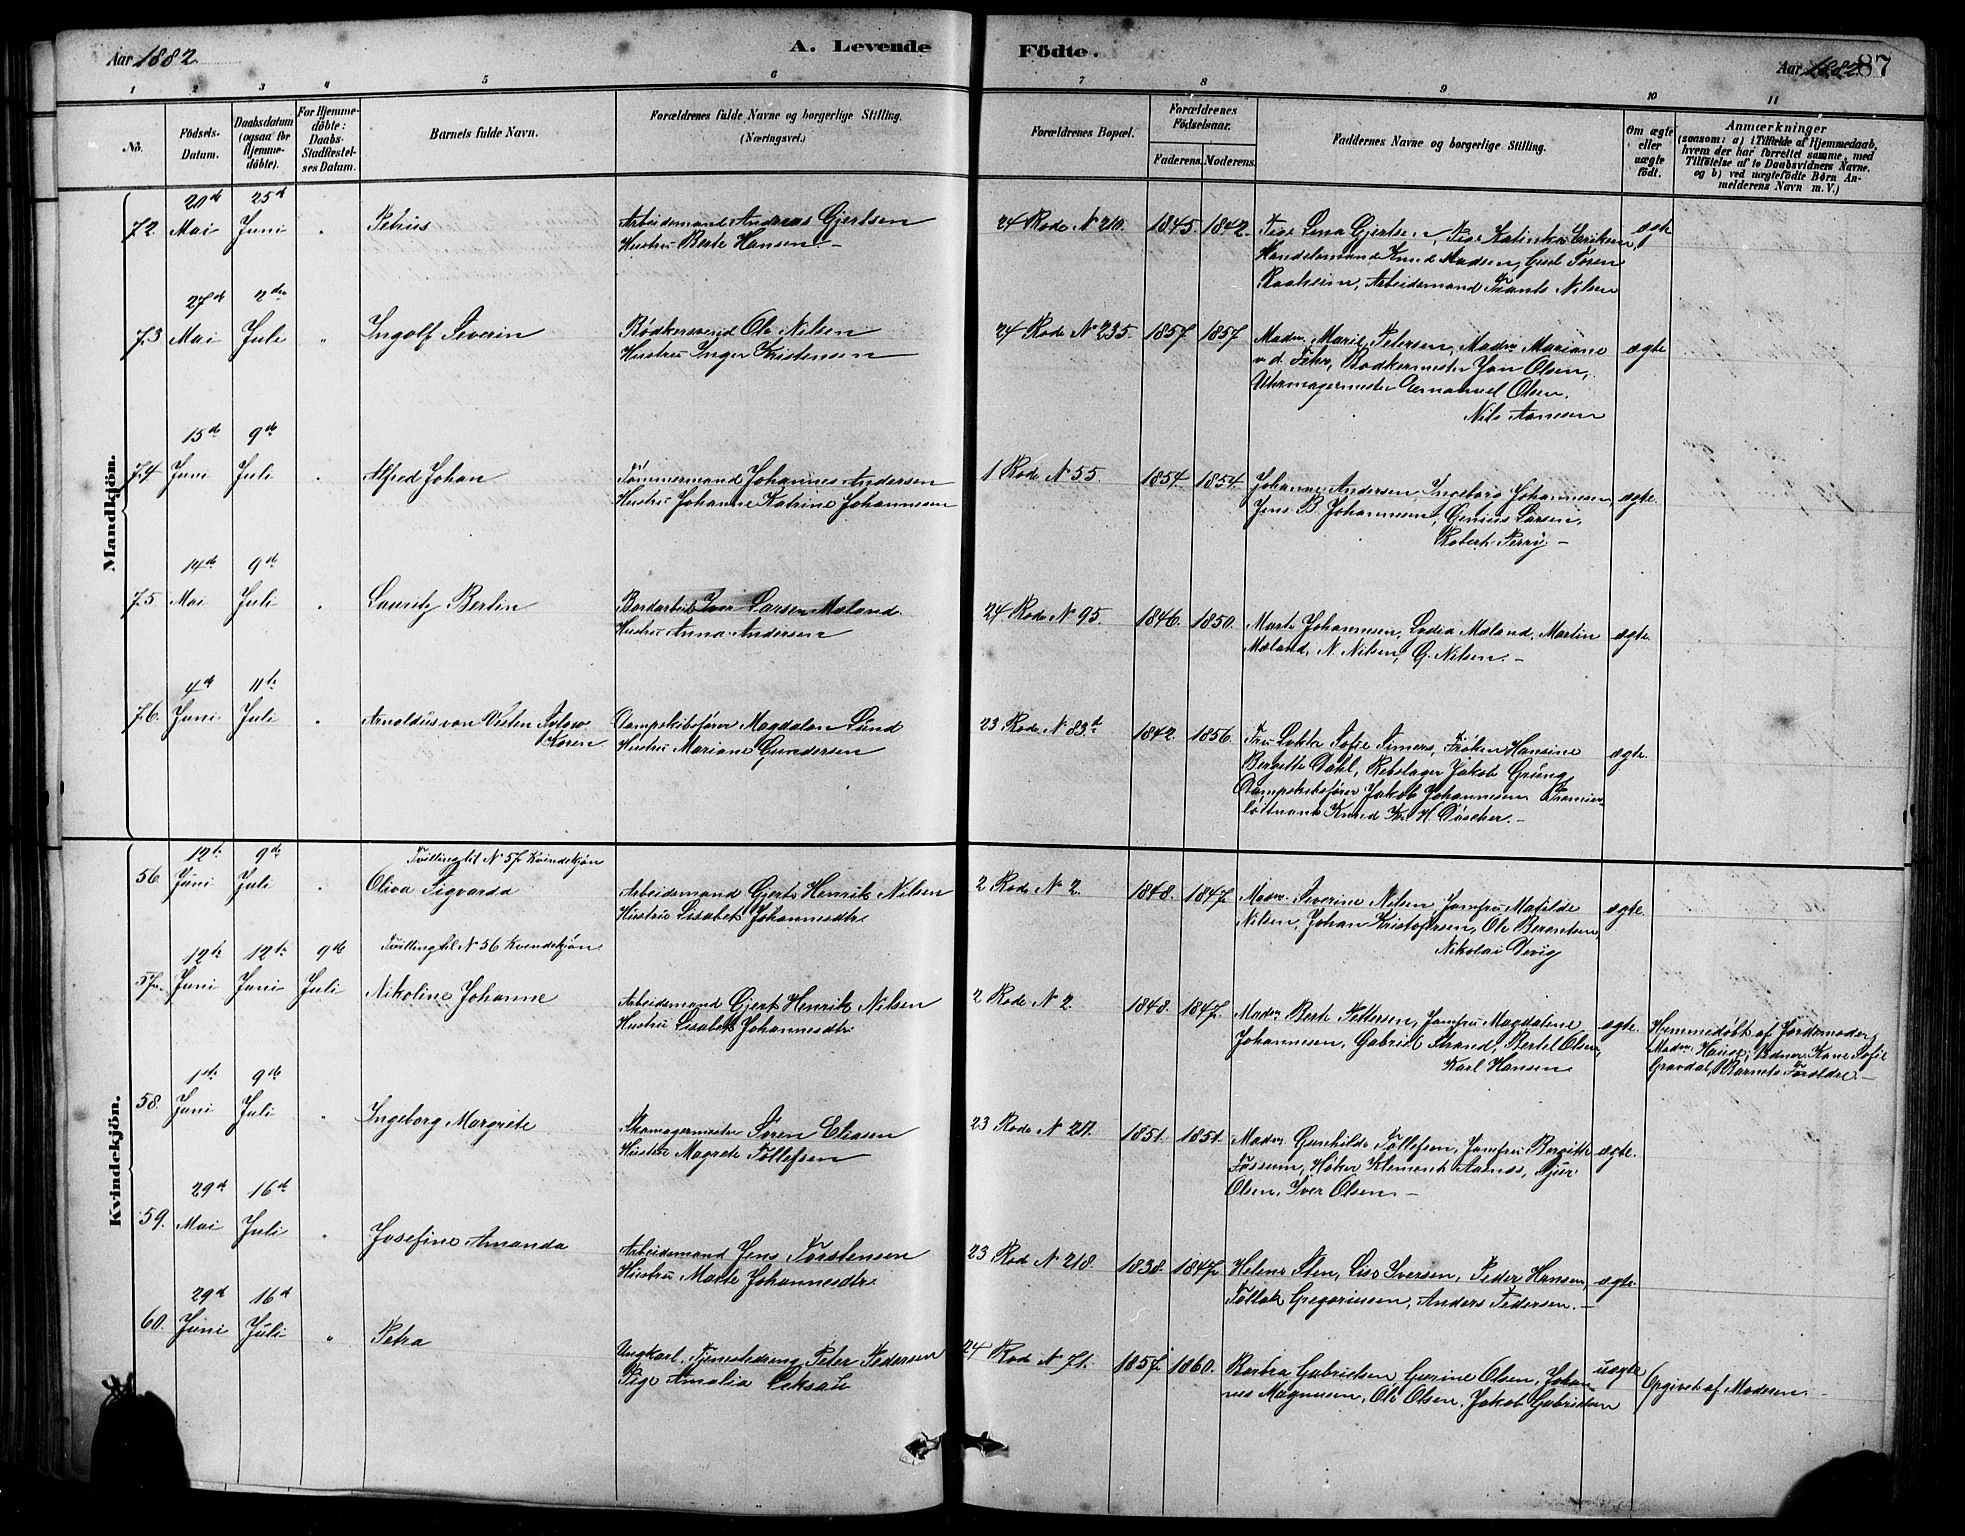 Aar 1882.
A. Levende Födte.
Aar 1882 87
1 2 3 4 5 6 7 8 9 10 11
No.
Födsels-Datum.
Daabsdatum (ogsaa for Hjemmedöbte).
For Hjemmedöbte: Daabs-Stadfæstelses Datum.
Barnets fulde Navn.
Forældrenes fulde Navne og borgerlige Stilling.
(Næringsvei.)
Forældrenes Bopæl.
Forældrenes Födselsaar.
Faderens. Moderens.
Faddernes Navne og borgerlige Stilling.
Om ægte eller uægte født.
Anmærkninger
(saasom: a) i Tilfælde af Hjemmedaab,
hvem der har forrettet samme, med
Tilföielse af to Daabsvidners Navne.
og b) ved uægtefödte Börn An-
melderens Navn m. V.)
Mandkjön.
20de 25de
72. Mai Juni " Petrus
Arbeidsmand Andreas Gjertsen
Hustru Berte Hansen
24 Rode N 210. 1845. 1842.
Pige Lena Gjertsen, Pige Katinka Eriksen,
Handelsmand Knud Madsen, Gaul Sören
Raaheim, Arbeidsmand Frants Nilsen
ægte
27de 2den
73 Mai Juli " Ingolf Severin
Bödkersvend Ole Nilsen
Hustru Inger Kristensen
24 Rode N 235. 1857. 1857
Madm. Marie Petersen, Madm. Mariane
v. d. Fehr, Bödkermester Jan Olsen,
Uhrmagermester Emanuel Olsen,
Nils Aanesen
ægte
15de 9de
74. Juni Juli " Alfred Johan
Tömmermand Johannes Andersen
Hustru Johanne Katrine Johannesen
1 Rode N 55 1854. 1854.
Johanne Andersen, Ingeborg Johannesen,
Jens B. Johannesen, Genius Larsen,
Robert Perry –
ægte.
14de 9de
75 Mai Juli " Lauritz Bertin
Bordarbeid. Iver Larsen Mæland
Hustru Anna Andersen
24 Rode N 95. 1846. 1850.
Marte Johannesen, Lydia Mæland, Martin
Mæland, N. Nilsen, G. Nilsen. –
ægte.
4de 11te
76. Juni Juli " Arnoldus von Vesten Sylow
Koren
Dampskibsförer Magdalon Lund
Hustru Mariane Gundersen
23 Rode N 83b 1842. 1856.
Fru Lokta Sofie Simers, Fröken Hansine
Bergitte Dahl, Rebslager Jakob Grung,
Dampskibsförer Jakob Johannesen Premier-
löitnant Knud Kr. H. Döscher. –
ægte.
Kvindekjön.
12te 9de Tvilling til N 57 Kvindekjön
56. Juni Juli " Oliva Sigvarda
Arbeidsmand Gjert Henrik Nilsen
Hustru Lisabet Johannesdtr
2 Rode N 2. 1848. 1847.
Madm. Severine Nilsen Jomfru Matilde
Nilsen, Johan Kristofersen, Ole Berentsen,
Nikolai Devig
ægte.
12te 12te 9de Tvilling til N 56 Kvindekjön
57. Juni Juni Juli Nikoline Johanne
Arbeidsmand Gjert Henrik Nilsen
Hustru Lisabet Johannesdtr
2 Rode N 2. 1848. 1847.
Madm Berte Pettersen, Jomfru Magdalene
Johannesen, Gabriel Strand, Bertel Olsen,
Karl Hansen
ægte.
Hemmedöbt af Jordemoder
Madm. Hause; Vidner Kone Sofie
Gravdal, Barnets Forældre. –
1ste 9de
58. Juni Juli " Ingeborg Margrete
Skomagermester Sören Eliasen
Hustru Magrete Tollefsen
23 Rode N 211. 1851. 1851.
Madm. Gunhilde Tollefsen, Jomfru Bergitte
Fossum, Höker Klement Aasnæs, Sjur
Olsen, Iver Olsen. –
ægte.
29de 16de
59. Mai Juli " Josefine Amanda
Arbeidsmand Jens Torstensen
Hustru Marte Johannesdtr
23 Rode N 218. 1838. 1847
Helene Sten, Lise Iversen, Peder Hansen,
Tollak Gregoriusen, Anders Pedersen. –
ægte.
29de 16de
60. Juni Juli " Petra
Ungkarl. Tjenestedreng Peter Pedersen
Pige Amalia Oeksali
24 Rode N 71. 1857. 1860.
Barbra Gabrielsen, Gurine Olsen, Johan-
nes Magnusen, Ole Olsen, Jakob Gabrielsen
uægte
Opgivet af Moderen. –